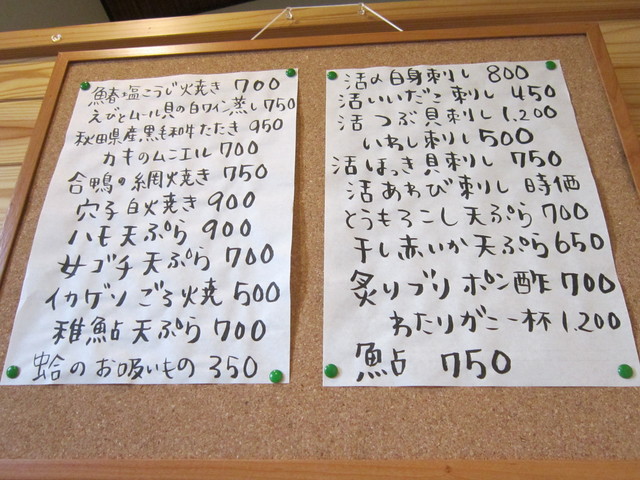 鰆塩こうじ火焼き 700
えびとムール貝の白ワイン蒸し 750
秋田県産黒毛和牛たたき 950
カキのムニエル 700
合鴨の網火焼き 750
穴子白火焼き 900
ハモ天ぷら 900
女ゴチ天ぷら 700
イカゲソごろ火焼 500
稚鮎天ぷら 700
蛤のお吸いもの 350
活〆白身刺し 800
活いいだこ刺し 450
活つぶ貝刺し 1.200
いわし刺し 500
活ほっき貝刺し 750
活あわび刺し 時価
とうもろこし天ぷら 700
干し赤いか天ぷら 650
炙りブリポン酢 700
わたりがに一杯 1.200
鮎 750